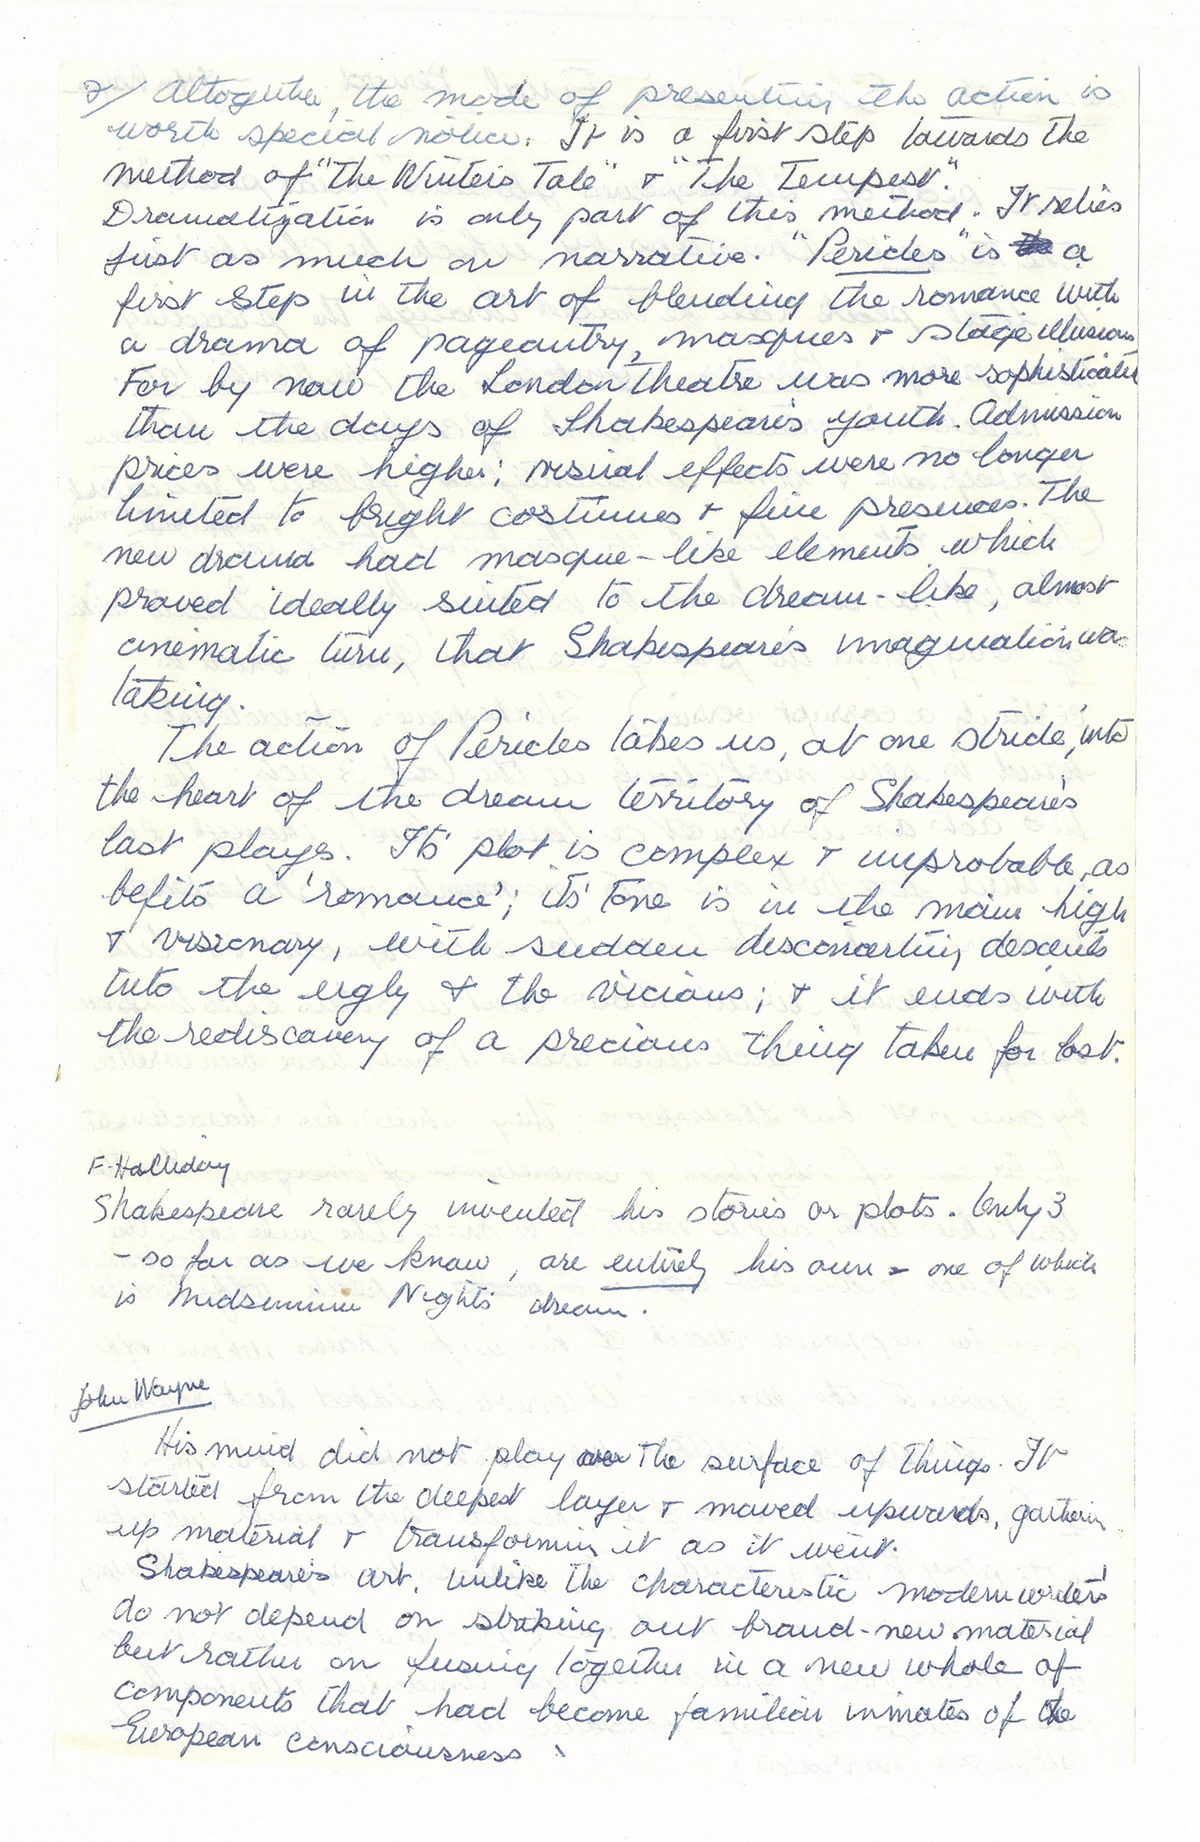 7/ Altogether, the mode of presenting the action is
worth special notice. It is a first step towards the
method of "The Winter's Tale" & "The Tempest".
Dramatization is only part of this method. It relies
just as much on narrative. "Pericles" is a
first step in the art of blending the romance with
a drama of pageantry, masques & stage illusions
For by now the London theatre was more sophisticated
than the days of Shakespeare's youth. Admission
prices were higher; visual effects were no longer
limited to bright costumes & fine presences. The
new drama had masque-like elements which
proved ideally suited to the dream-like, almost
cinematic turn, that Shakespeare's imagination was
taking.
The action of Pericles takes us, at one stride, into
the heart of the dream territory of Shakespeare's
last plays. Its' plot is complex & improbable, as
befits a 'romance'; its' tone is in the main high
& visionary, with sudden disconcerting descents
into the ugly & the vicious; & it ends with
the rediscovery of a precious thing taken for lost.
F. Halliday
Shakespeare rarely invented his stories or plots. Only 3
- so far as we know, are entirely his own - one of which
is Midsummer Night's dream.
John Wayne
His mind did not play over the surface of things. It
started from the deepest layer & moved upwards, gathering
up material & transforming it as it went.
Shakespeare's art, unlike the characteristic modern writers'
do not depend on striking out brand-new material
but rather on fusing together in a new whole of
components that had become familiar inmates of the
European consciousness.